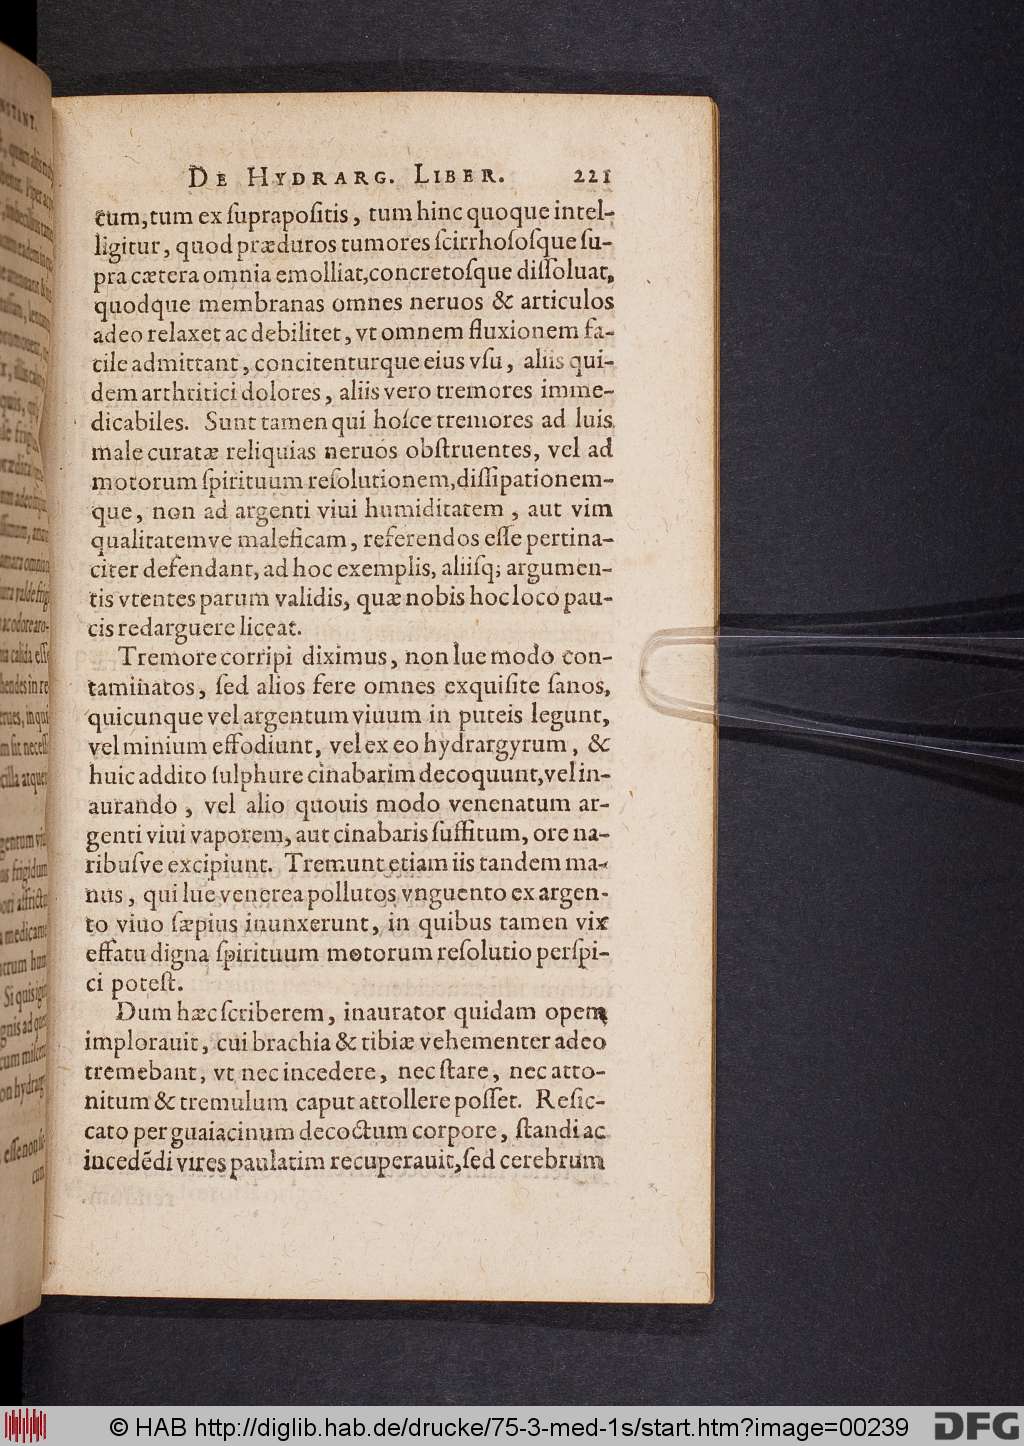 DE HYDRARG. LIBER. 221
cum, tum ex ſuprapoſitis, tum hinc quoque intel-
ligitur, quod præduros tumores ſcirrhoſoſque ſu-
pra cætera omnia emolliat, concretoſque diſſoluat,
quodque membranas omnes neruos & articulos
adeo relaxet ac debilitet, vt omnem fluxionem fa-
cile admittant, concitenturque eius vſu, aliis qui-
dem arthritici dolores, aliis vero tremores imme-
dicabiles. Sunt tamen qui hoſce tremores ad luis
male curatæ reliquias neruos obſtruentes, vel ad
motorum ſpirituum reſolutionem, diſſipationem-
que, non ad argenti viui humiditatem, aut vim
qualitatemve maleficam, referendos eſſe pertina-
citer defendant, ad hoc exemplis, aliiſq; argumen-
tis vtentes parum validis, quæ nobis hoc loco pau-
cis redarguere liceat.
Tremore corripi diximus, non lue modo con-
taminatos, ſed alios fere omnes exquiſite ſanos,
quicunque vel argentum viuum in puteis legunt,
vel minium effodiunt, vel ex eo hydrargyrum, &
huic addito ſulphure cinabarim decoquunt, vel in-
aurando, vel alio quouis modo venenatum ar-
genti viui vaporem, aut cinabaris ſuffitum, ore na-
ribuſve excipiunt. Tremunt etiam iis tandem ma-
nus, qui lue venerea pollutos vnguento ex argen-
to viuo ſæpius inunxerunt, in quibus tamen vix
effatu digna ſpirituum motorum reſolutio perſpi-
ci poteſt.
Dum hæc ſcriberem, inaurator quidam opem
implorauit, cui brachia & tibiæ vehementer adeo
tremebant, vt nec incedere, nec ſtare, nec atto-
nitum & tremulum caput attollere poſſet. Reſic-
cato per guaiacinum decoctum corpore, ſtandi ac
incedēdi vires paulatim recuperauit, ſed cerebrum
© HAB http://diglib.hab.de/drucke/75-3-med-1s/start.htm?image=00239
DFG